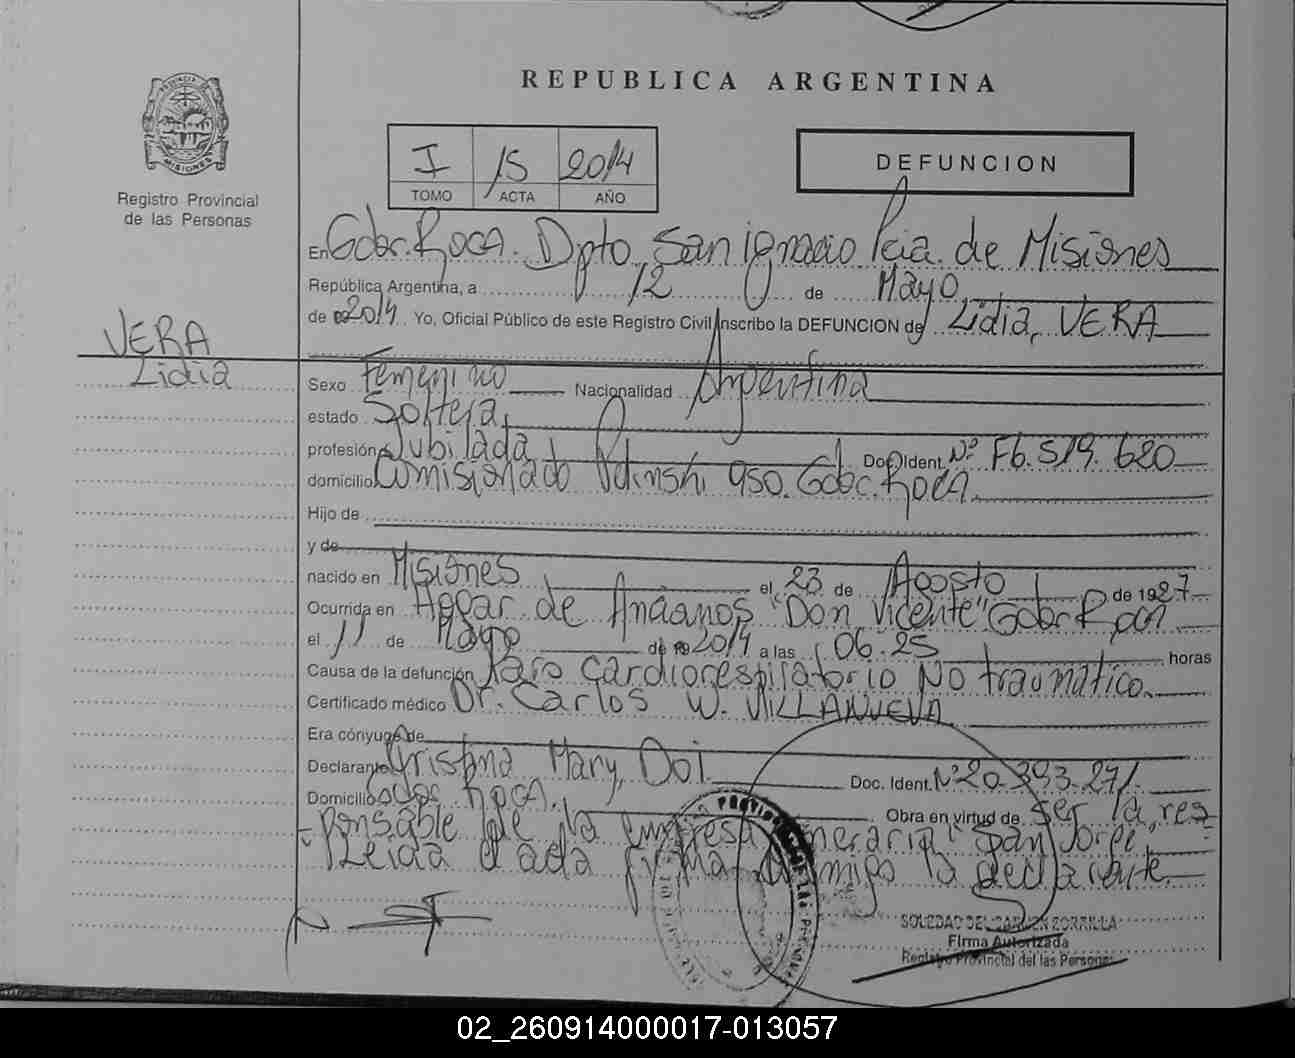 REPUBLICA ARGENTINA
I 15 2014
TOMO ACTA AÑO
DEFUNCION
Registro Provincial
de las Personas
En Gdor. Roca. Dpto. San ignacio Pcia. de Misiones
República Argentina, a 12 de Mayo
de 2014 Yo, Oficial Público de este Registro Civil inscribo la DEFUNCION de Lidia, VERA
VERA
Lidia
Sexo Femenino Nacionalidad Argentina
estado Soltera
profesión Jubilada Doc. Ident. Nº F6.519.620
domicilio Comisionado 950. Gdor. Roca
Hijo de
y de
nacido en Misiones el 23 de Agosto de 1927
Ocurrida en Hogar de Ancianos "Don Vicente" Gdor Roca
el 11 de Mayo de 2014 a las 06.25 horas
Causa de la defunción Paro cardiorespiratorio No traumático
Certificado médico Dr. Carlos W. VILLANUEVA
Era cónyuge de
Declarante Cristina Mary, Dol Doc. Ident. Nº 20.393.271
Domicilio Gdor Roca. Obra en virtud de ser la res
ponsable de la empresa funeraria "San Jorge"
Leida el acta firma conmigo la declarante.
SOLEDAD DEL CARMEN ZORRILLA
Firma Autorizada
Registro Provincial del las Personas
02_260914000017-013057